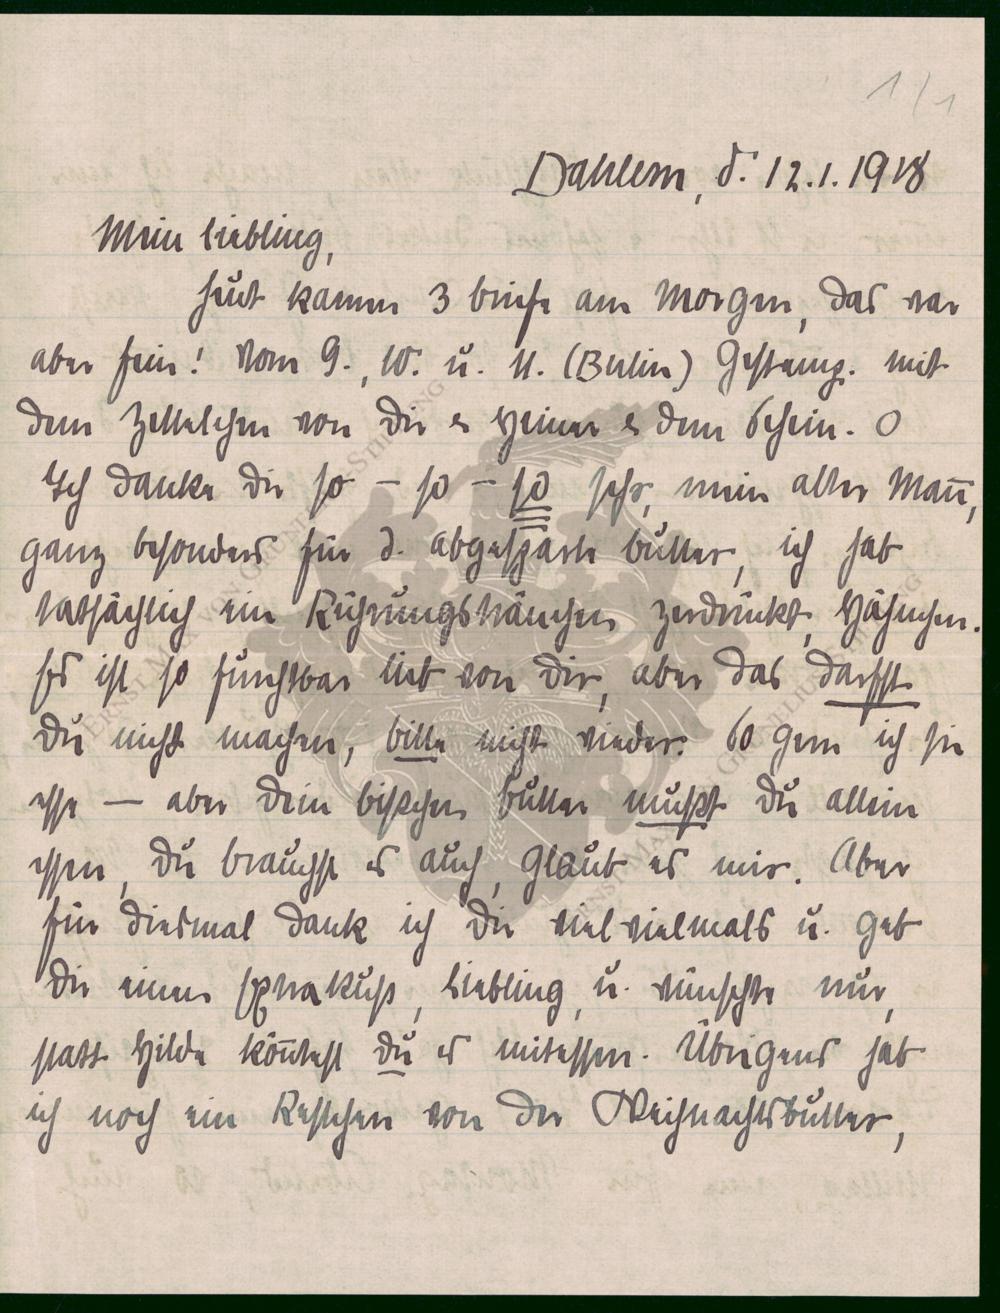 1/1
Dahlem, d. 12.1.1918
Mein Liebling,
heut kamen 3 Briefe am Morgen, das war
aber fein! Vom 9., 10. u. 11. (Berlin) Gestemp. mit
dem Zettelchen von Dir & Heiner & dem Schein. O
Ich danke Dir so – so – so sehr, mein alter Mañ,
ganz besonders für d. abgesparte Butter, ich hab
tatsächlich ein Rührungstränchen zerdrückt, Hähnchen.
Es ist so furchtbar lieb von Dir, aber das darfst
Du nicht machen, bitte nicht wieder. So gern ich sie
esse — aber Dein bißchen Butter mußt Du allein
essen, Du brauchst es auch, glaub es mir. Aber
für diesmal dank ich Dir viel vielmals u. geb
Dir einen Extrakuß, Liebling, u. wünschte nur,
statt Hilde köñtest Du es mitessen. Übrigens hab
ich noch ein Restchen von der Weihnachtsbutter,
Ernst Max von Grunelius-Stiftung
Ernst Max von Grunelius-Stiftung